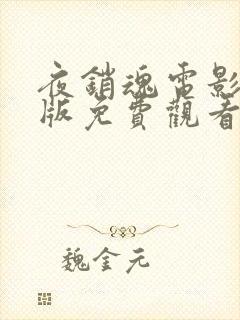 夜銷魂電影
版免費觀看
魏金元